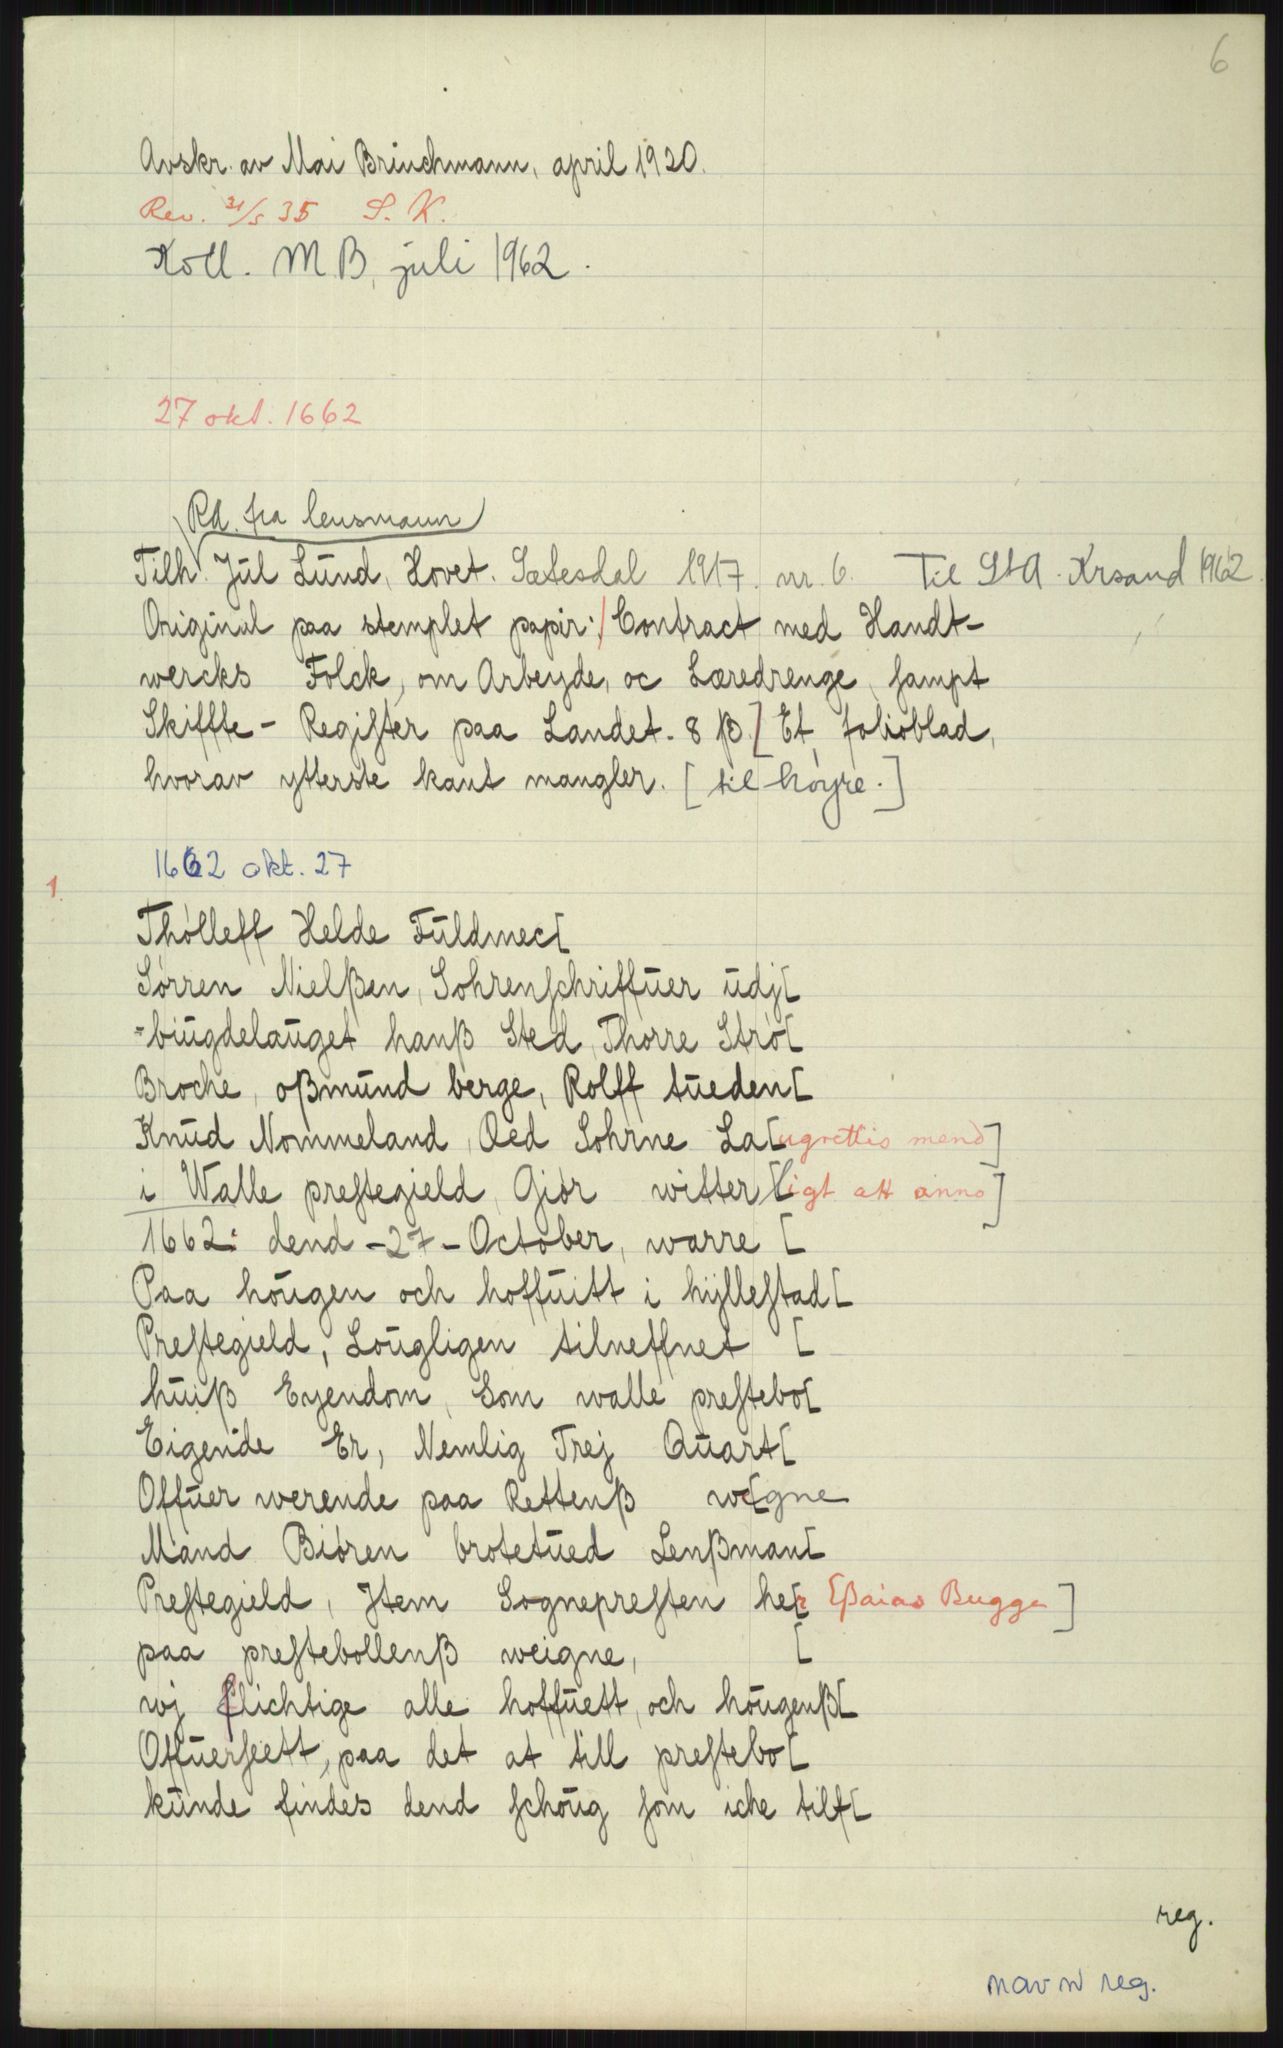 6
Avskr. av Mai Brinchmann, april 1920.
Rev. 31/5 35 S. K.
Koll. M.B, juli 1962.
27 okt. 1662
Rd. fra lensmann
Tilh. Jul Lund, Hovet. Sætesdal 1917. nr. 6. Til StA. Krsand 1962.
Original paa stemplet papir:/ Contract med Handt-
wercks Folck, om Arbeyde, oc Læredrenge, sampt
Skiffte - Register paa Landet. 8 β.] Et folioblad,
hvorav ytterste kant mangler. [til høyre.]
1662 okt. 27
1.
Thölleff Helde Füldmec[
Sørren Nielßen, Sohrenschriffüer üdj[
=biügdelaüget hanß Sted, Thorre Strö[
Broche, oßmünd berge, Rolff tüeden[
Knüd Nommeland, Oed Sohrne La[ugrettis mend]
i Walle prestegield, Giör witter[ligt att anno]
1662: dend -27- October, warre [
Paa höugen och hoffuitt i hÿllestad[
Prestegield, Loügligen tilneffnet [
huiß Eyendom, Som walle prestebo[
Eigende Er, Nemlig Trej Qüart[
Offüer werende paa Rettenß we[gne
Mand Biören brotetüed Lenßman[
Prestegield, Jtem Sognepresten he[r Eßaias Bugge]
paa prestebollenß weigne, [
wj flichtige alle hoffüett, och höugenß[
Offüerseett, paa det at till prestebo[
künde findes dend schoüg som iche tilst[
reg.
navn reg.